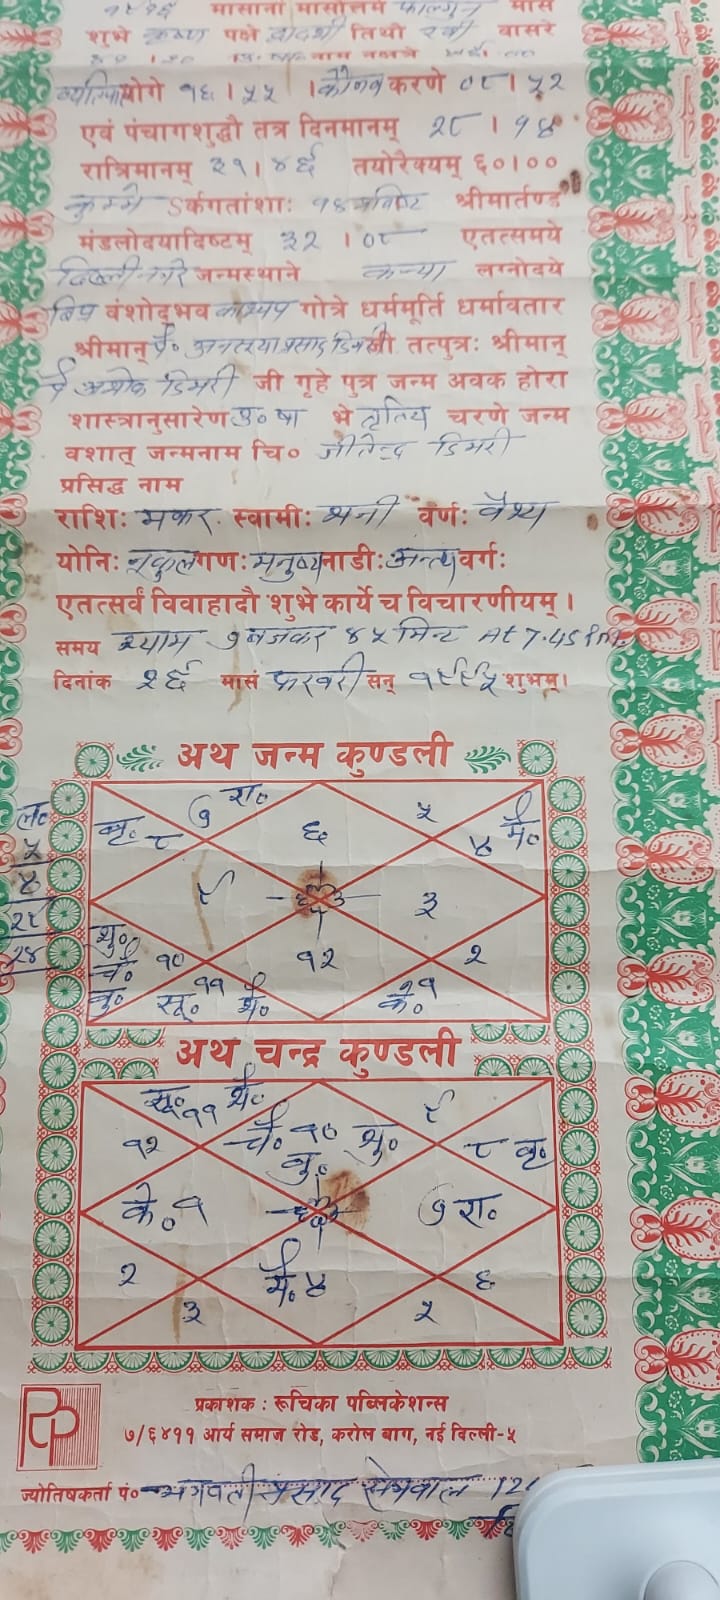 १९१६ मासानां मासोत्तमे फाल्गुन मासे
शुभे कृष्ण पक्षे द्वादशी तिथौ रवी वासरे
योगे १६।५५ ।कौलव करणे ०८।५२
एवं पंचागशुद्धौ तत्र दिनमानम् २८।१४
रात्रिमानम् ३१।४६ तयोरैक्यम् ६०।००
कुम्भे ऽर्कगतांशाः १४ श्रीमार्तण्ड
मंडलोदयादिष्टम् ३२।०८ एतत्समये
जन्मस्थाने कन्या लग्नोदये
विप्र वंशोद्भव काश्यप गोत्रे धर्ममूर्ति धर्मावतार
श्रीमान् पं० अनसूया प्रसाद डिमरी तत्पुत्रः श्रीमान्
पं अशोक डिमरी जी गृहे पुत्र जन्म अवक होरा
शास्त्रानुसारेण उ०षा भे तृतिय चरणे जन्म
वशात् जन्मनाम चि० जीतेन्द्र डिमरी
प्रसिद्ध नाम
राशिः मकर. स्वामीः शनी वर्णः वैश्य
योनिः नकुल गणः मनुष्य नाडीः अन्त्य वर्गः
एतत्सर्वं विवाहादौ शुभे कार्ये च विचारणीयम्।
समय श्याम ७ बजकर ४५ मिन्ट At 7.45 P.M.
दिनांक २६ मासं फरवरी सन् १९९५ शुभम्।
अथ जन्म कुण्डली
ल०
५
४
२९
२४
बृ. ८
७ रा०
६
५
४ मं०
९
३
शु० चं० बु० १०
सू० ११ श०
१२
के० १
२
अथ चन्द्र कुण्डली
सू० ११ श०
१२
चं० १० शु०
बु०
९
८ बृ.
के० १
७ रा०
२
३
मं० ४
५
६
RP
प्रकाशक : रूचिका पब्लिकेशन्स
७/६४११ आर्य समाज रोड, करोल बाग, नई दिल्ली-५
ज्योतिषकर्ता पं० भगवती प्रसाद सेमवाल